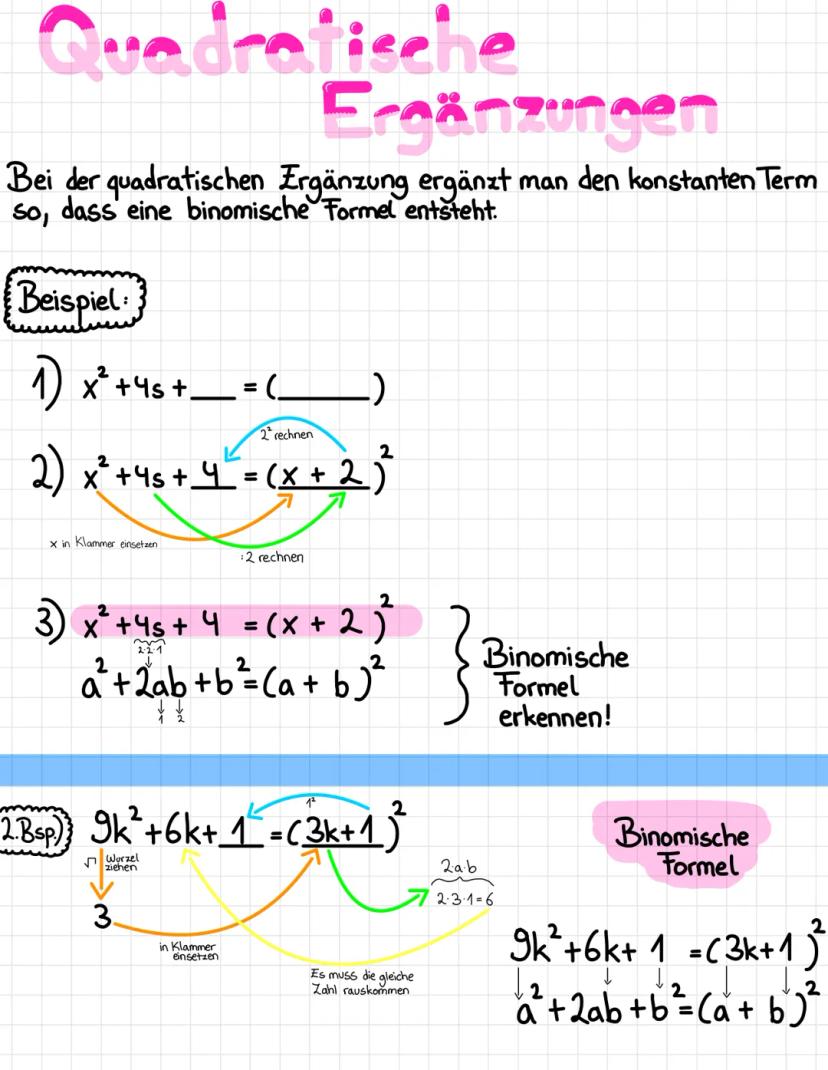 Quadratische
Ergänzungen
Bei der quadratischen Ergänzung ergänzt man den konstanten Term
so, dass eine binomische Formel entsteht.
Beispiel:
1) x² +4s + ___ = (______)
2² rechnen
2) x² +4s + 4 = (x + 2)²
x in Klammer einsetzen
:2 rechnen
3) x² +4s + 4 = (x + 2)²
2·2·1
a² +2ab +b² =(a + b)²
1 2
Binomische
Formel
erkennen!
1²
2.Bsp.) 9k² +6k+ 1 =(3k+1)²
√ Wurzel
ziehen
3
in Klammer
einsetzen
2·a·b
2·3·1=6
Es muss die gleiche
Zahl rauskommen
Binomische
Formel
9k² +6k+ 1 =(3k+1)²
a² +2ab +b² =(a + b)²